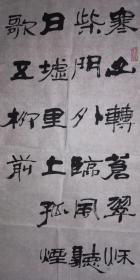 寒山轉蒼翠秋
柴門外臨風聽
日墟里上孤煙
歌五柳前